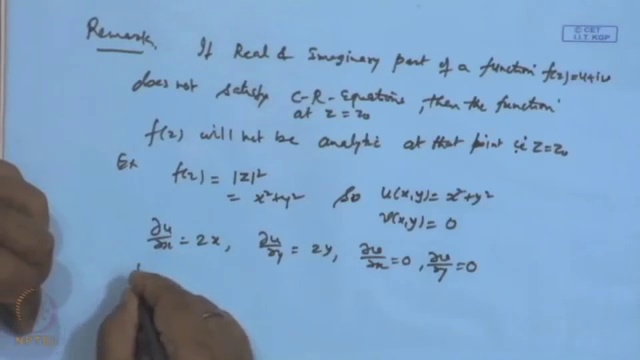 © CET
I.I.T. KGP
Remark If Real & Imaginary part of a function f(z)=u+iv
does not satisfy C-R-Equations, then the function
at z=z₀
f(z) will not be analytic at that point i.e. z=z₀
Ex f(z) = |z|²
= x²+y² So u(x,y) = x²+y²
v(x,y) = 0
∂u/∂x = 2x, ∂u/∂y = 2y, ∂v/∂x = 0, ∂v/∂y = 0
NPTEL